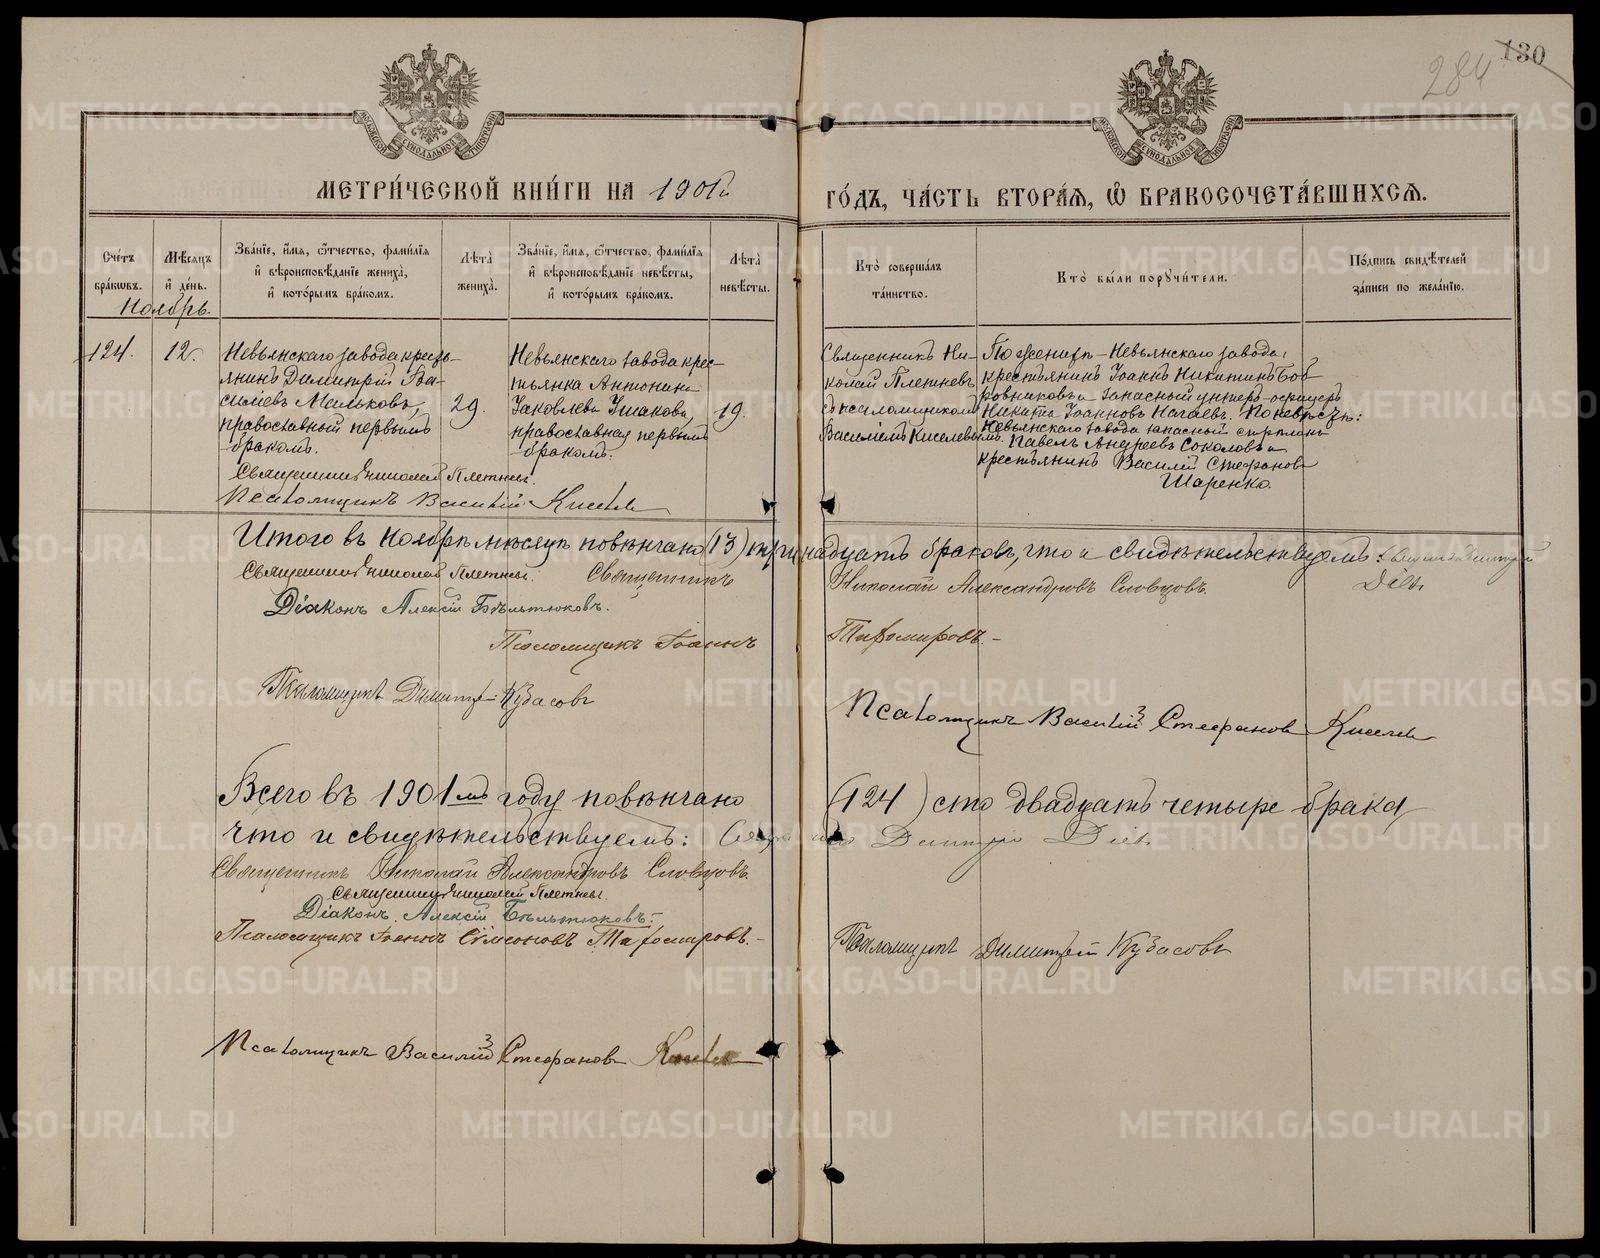 284
130
МОСКОВСКОЙ СѴНОДАЛЬНОЙ ТИПОГРАФІИ
МОСКОВСКОЙ СѴНОДАЛЬНОЙ ТИПОГРАФІИ
МЕТРИ́ЧЕСКОЙ КНИ́ГИ НА 1901й ГО́ДЪ, ЧА́СТЬ ВТОРА́Я, Ѽ БРАКОСОЧЕТА́ВШИХСЯ.
Сче́тъ бра́ковъ.
Мѣ́сяцъ и҆ де́нь.
Зва́нїе, и҆́мя, ѻ҆́тчество, фами́лїѧ
и҆ вѣроисповѣ́данїе женихà,
и҆ кото́рымъ бра́комъ.
Лѣта̀ женихà.
Зва́нїе, и҆́мя, ѻ҆́тчество, фами́лїѧ
и҆ вѣроисповѣ́данїе невѣ́сты,
и҆ кото́рымъ бра́комъ.
Лѣта̀ невѣ́сты.
Кто̀ соверша́лъ
та́инство.
Кто̀ бы́ли порꙋчи́тели.
По́дпись свидѣ́телей
за́писи по жела́нїю.
Ноябрь.
124.
12.
Невьянскаго завода кресть-
янинъ Димитрій Ва-
сильевъ Мальковъ,
православный первымъ
бракомъ.
29.
Невьянскаго завода крес-
тьянка Антонина
Іаковлева Ушакова,
православная первымъ
бракомъ.
19.
Священникъ Ни-
колай Плетневъ
съ псаломщикомъ
Василіемъ Киселевымъ.
По женихѣ - Невьянскаго завода:
крестьянинъ Іоаннъ Никитинъ Боб-
ровниковъ и запасный унтеръ-офицеръ
Никита Іоанновъ Нагаевъ. По невѣстѣ:
Невьянскаго завода запасный
Павелъ Андреевъ Соколовъ и
крестьянинъ Василій Стефановъ
Шаренко.
Священникъ Николай Плетневъ.
Псаломщикъ Василій Киселевъ
Итого въ Ноябрѣ мѣсяцѣ повѣнчано (13) тринадцать браковъ, что и свидѣтельствуемъ: Священникъ Димитрій
Діевъ
Священникъ Николай Плетневъ. Священникъ Николай Александровъ Словцовъ.
Діаконъ Алексій Бѣльтюковъ.
Псаломщикъ Іоаннъ Тихомировъ.-
Псаломщикъ Димитрій Кузасовъ
Псаломщикъ Василій Стефановъ Киселевъ
Всего въ 1901мъ году повѣнчано (124) сто двадцать четыре брака
что и свидѣтельствуемъ: Священникъ Димитрій Діевъ
Священникъ Николай Александровъ Словцовъ.
Священникъ Николай Плетневъ.
Діаконъ Алексій Бѣльтюковъ.-
Псаломщикъ Іоаннъ Сѵмеоновъ Тихомировъ.-
Псаломщикъ Димитрій Кузасовъ
Псаломщикъ Василій Стефановъ Киселевъ
METRIKI.GASO-URAL.RU